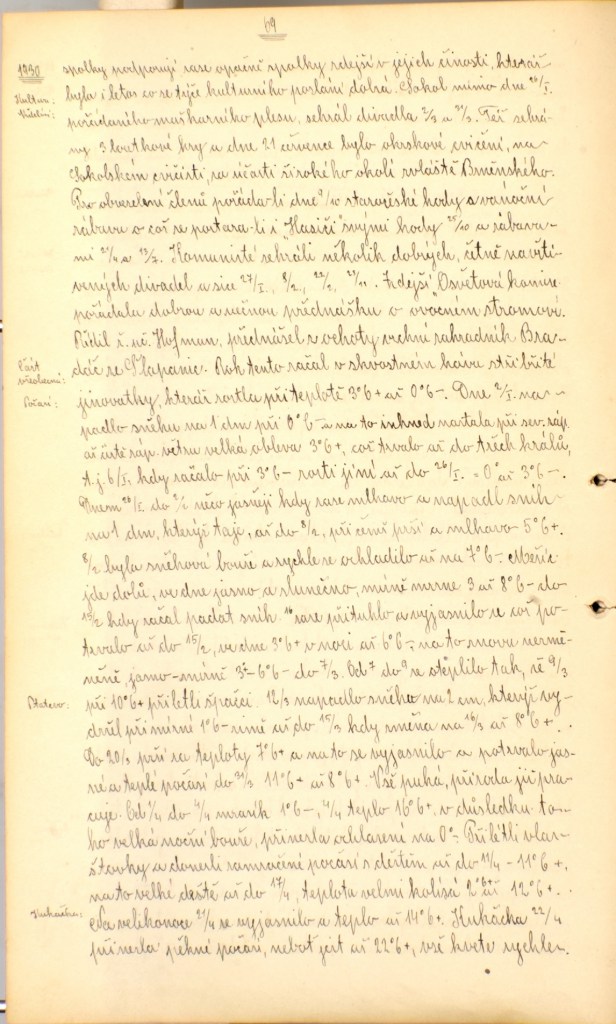 69
1930
spolky podporují zase opačně spolky zdejší v jejich činosti, kteráž
Kultur.
byla i letos co se týče kulturního poslání dobrá. Sokol mimo dne 26/I.
pořádaného maškarního plesu, sehrál divadla 2/3 a 31/3. Též sehrá-
ny 3 loutkové hry a dne 21 července bylo okrskové cvičení, na
Sokolském cvičišti, za účasti širokého okolí zvláště Brněnského.
Pro obveselení členů pořáda-li dne 9/10 staročeské hody a vánoční
zábavu o což se postara-li i "Hasiči" svými hody 25/10 a zábava-
mi 21/4 a 13/7. Komunisté sehráli několik dobrých, četně navští-
vených divadel a sice 27/I., 8/2., 22/2, 23/11. Zdejší "Osvětová komise"
pořádala dobrou a účinou přednášku o ovocném stromoví.
Řídil ř. uč. Hofman, přednášel z ochoty vrchní zahradník Bra-
Část
všeobecná:
dáč ze Šlapanic. Rok tento začal v skvostném hávu stříbřité
Počasí:
jinovatky, kteráž rostla při teplotě 3°C+ až 0°C-. Dne 2/I. na-
padlo sněhu na 1 dm při 0°C- a na to ihned nastala při sev. záp.
až čistě záp. větru velká obleva 3°C+, což trvalo až do Třech králů,
t.j. 6/I, kdy začalo při 3°C- růsti jíní až do 26/I. = 0° až 3°C-.
Dnem 26/I. do 2/2 něco jasněji kdy zase mlhavo a napadl sníh
na 1 dm, kterýž taje, až do 8/2, při čemž prší a mlhavo 5°C+.
8/2 byla sněhová bouře a rychle se ochladilo až na 7°C-. Měříc
jde dolů, ve dne jasno a slunečno, mírně mrzne 3 až 8°C- do
15/2 kdy začal padat sníh. 16 zase přituhlo a vyjasnilo se což po-
trvalo až do 15/2, ve dne 3°C+ v noci až 6°C-, na to znova nezmě-
něně, jasno-mírně 3°-6°C- do 7/3. Od 7 do 9 se stěplilo tak, že 9/3
Ptactvo:
při 10°C+ přilétli špačci. 12/3 napadlo sněhu na 2 cm, kterýž vy-
držel při mírné 1°C- zimě až do 15/3 kdy změna na 16/3 až 8°C+.
Do 20/3 prší za teploty 7°C+ a na to se vyjasnilo a potrvalo jas-
né a teplé počasí do 31/3 11°C+ až 8°C+. Vše puká, příroda již pra-
cuje. Od 1/4 do 4/4 mrazík 1°C-, 4/4 teplo 16°C+, v důsledku to-
ho velká noční bouře, přinesla ochlazení na 0°. Přilétli vlaš-
tovky a donesli zamračené počasí s deštěm až do 11/4 - 11°C+,
na to velké deště až do 17/4, teplota velmi kolísá 2°C+ až 12°C+.
Kukačka:
Na velikonoce 21/4 se vyjasnilo a teplo až 14°C+. Kukačka 22/4
přinesla pěkné počasí, neboť jest až 22°C+, vše kvete rychle.